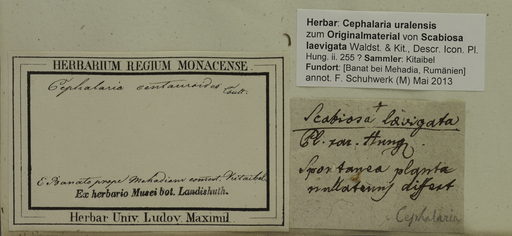 Herbar: Cephalaria uralensis
zum Originalmaterial von Scabiosa
laevigata Waldst. & Kit., Descr. Icon. Pl.
Hung. ii. 255 ? Sammler: Kitaibel
Fundort: [Banat bei Mehadia, Rumänien]
annot. F. Schuhwerk (M) Mai 2013
HERBARIUM REGIUM MONACENSE
Cephalaria centauroides Coult.
E Banatu prope Mehadiam comm. Kitaibel
Ex herbario Musei bot. Landishuth.
Herbar Univ. Ludov. Maximil.
Scabiosa lævigata
Pl. rar. Hung.
Spontanea planta
nullatenus differt
Cephalaria